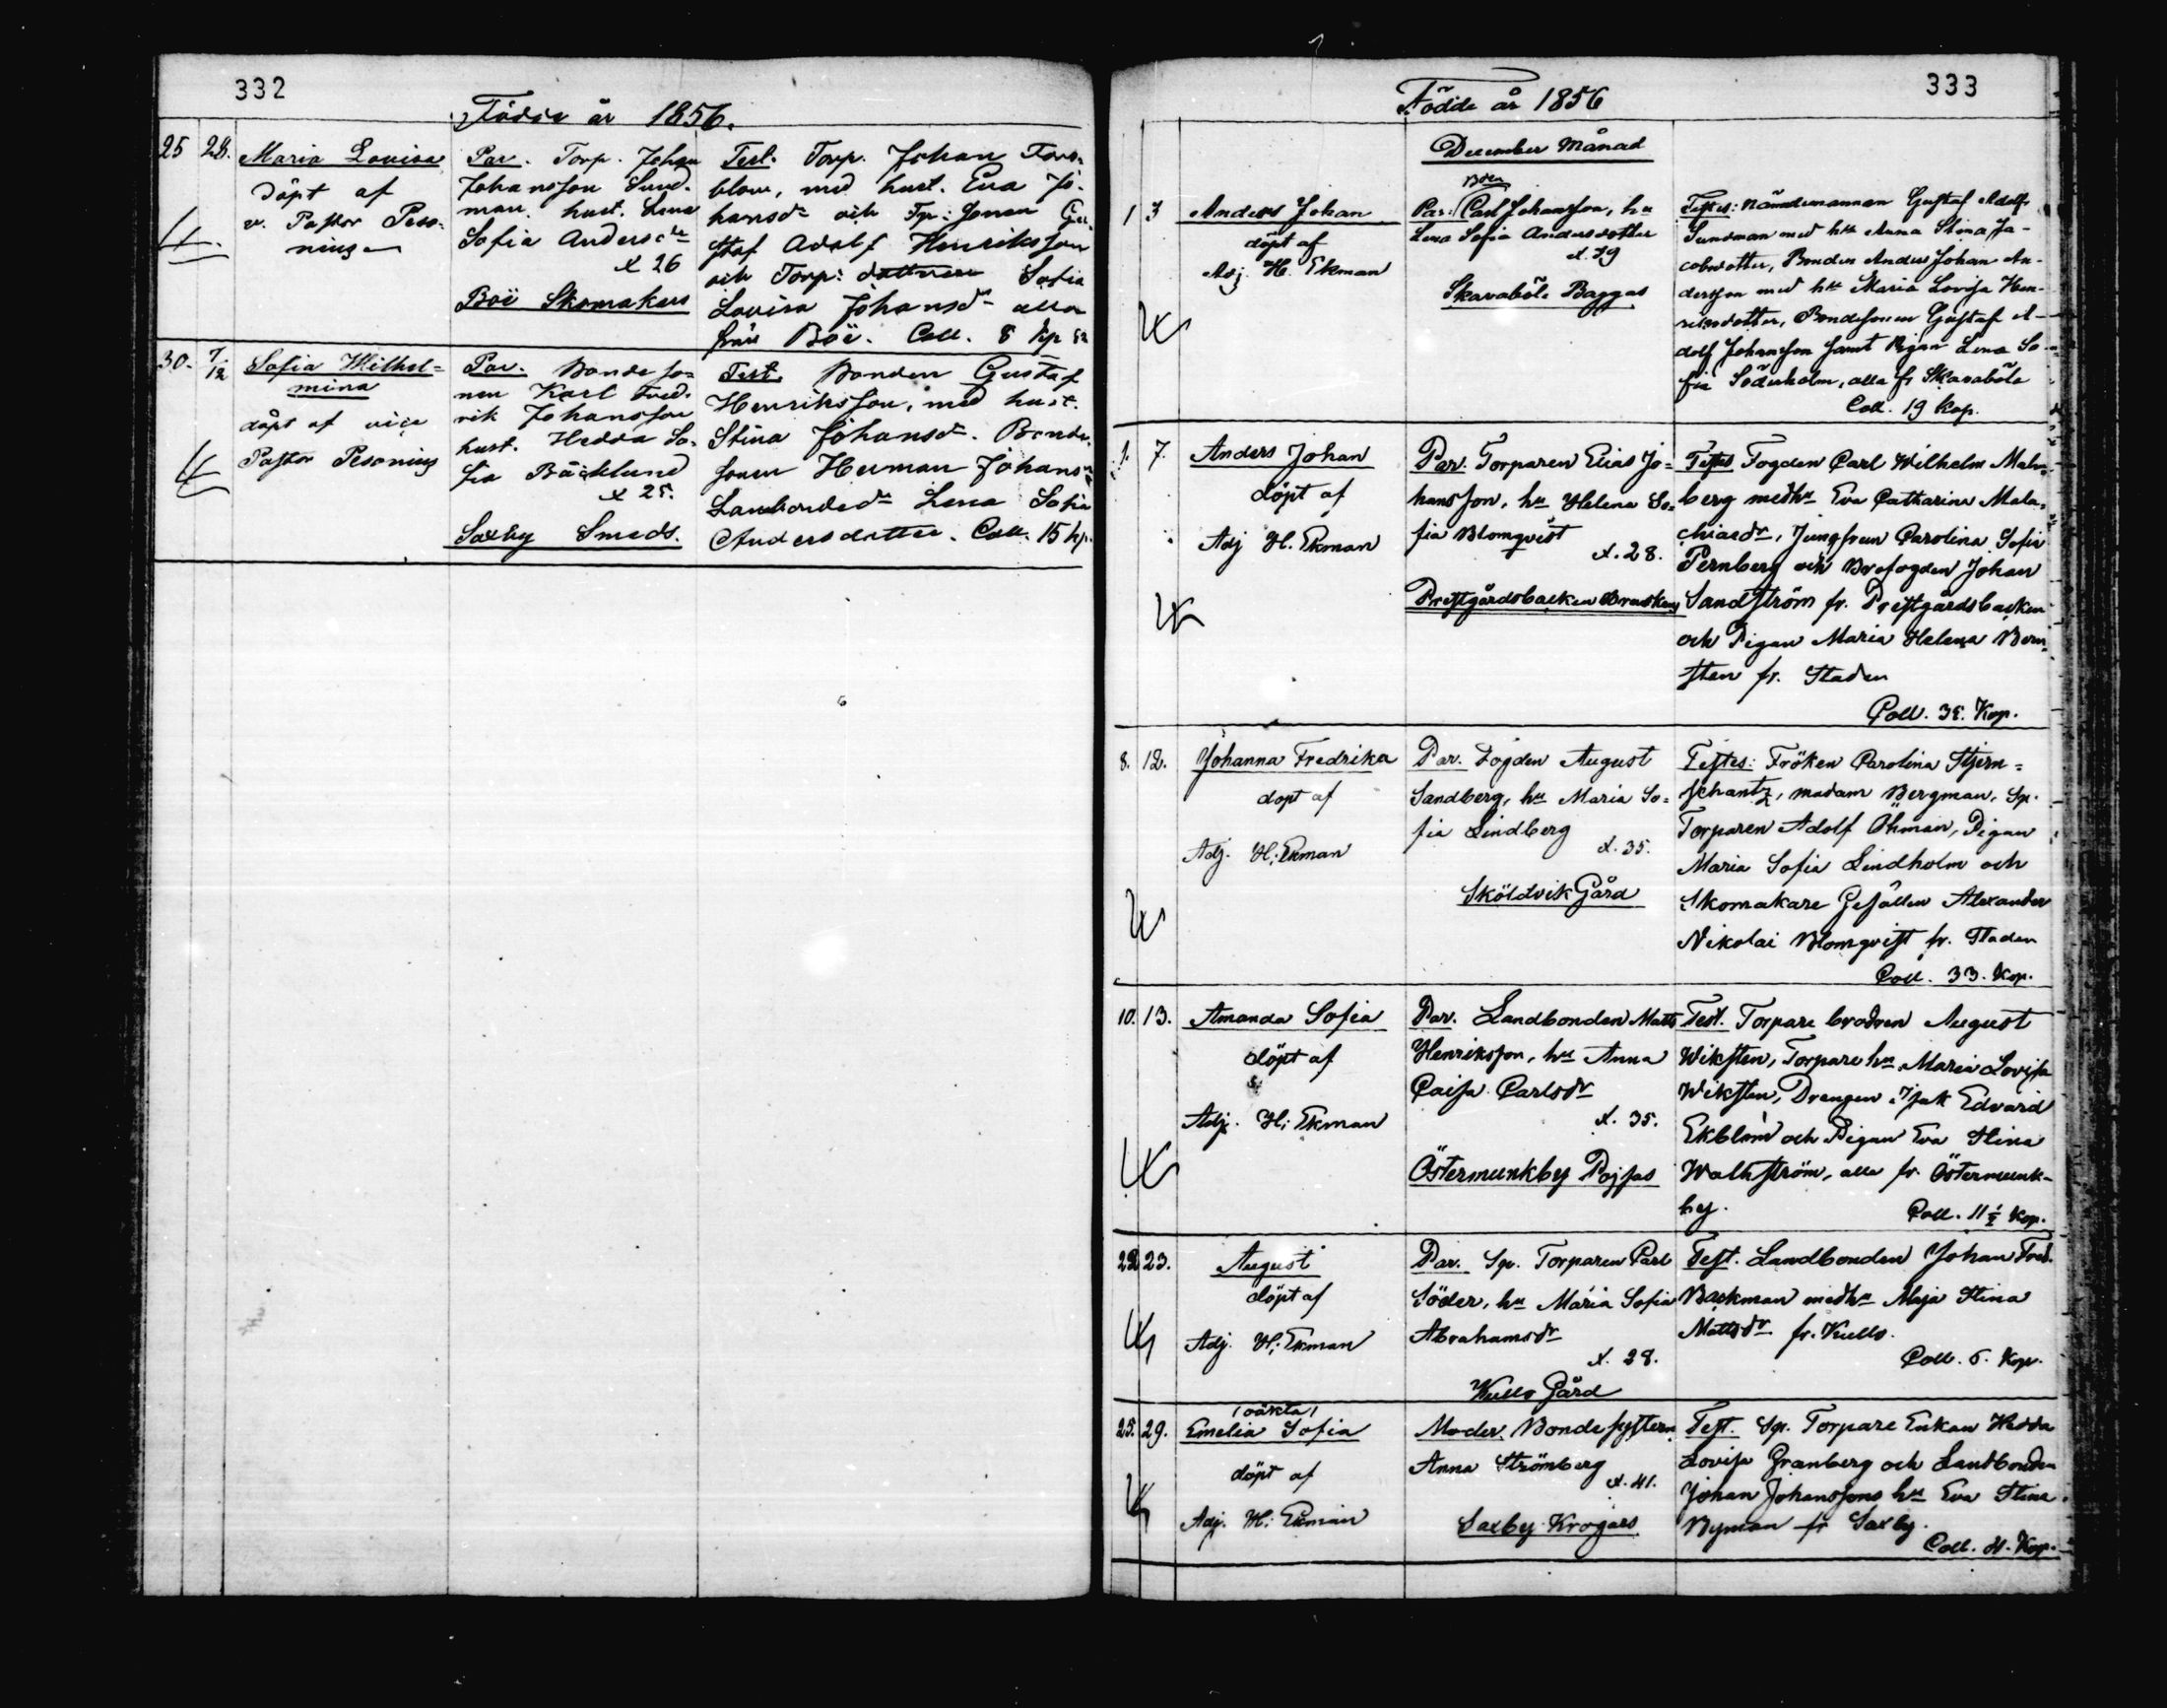 332
Födde år 1856.
25 28. Maria Lovisa
döpt af
v. Pastor Peso-
nius
Par. Torp. Johan
Johansson Sund-
man, hust. Lena
Sofia Andersdr
x 26
Boë Skomakars
Test. Torp. Johan Fors-
blom, med hust. Eva Jo-
hansdr och Tp: Sonen Gu-
staf Adolf Henriksson
och Torp: dottren Sofia
Lovisa Johansdr alla
från Boë. Coll. 8 kp
30. 7/12 Sofia Wilhel-
mina
döpt af vice
Pastor Pesonius
Par. Bonde so-
nen Karl Fred-
rik Johansson
hust. Hedda So-
fia Bäcklund
x 25.
Saxby Smeds.
Test. Bonden Gustaf
Henriksson, med hust.
Stina Johansdr. Bonde-
sonen Herman Johanss
Lambondedr Lena Sofia
Andersdotter. Coll. 15 kp.
333
Födde år 1856
December Månad
1 3 Anders Johan
döpt af
Adj. H. Ekman
Bden
Par: Carl Johansson, hu
Lena Sofia Andersdotter
x. 29
Skavaböle Baggas
Testes: Nämndemannen Gustaf Adolf
Sundman med hu Anna Stina Ja-
cobsdotter, Bonden Anders Johan An-
dersson med hu Maria Lovisa Hen-
riksdotter, Bondesonen Gustaf A-
dolf Johansson samt Pigan Lena So-
fia Söderholm, alla fr Skavaböle
Coll. 19 Kop.
1. 7. Anders Johan
döpt af
Adj H. Ekman
Par. Torparen Elias Jo-
hansson, hu Helena So-
fia Blomqvist
x. 28.
Prestgårdsbacken
Testes Fogden Carl Wilhelm Malm-
berg med hu Eva Catharina Mala-
chiasdr, Jungfrun Carolina Sofia
Pernberg och Brofogden Johan
Sandström fr. Prestgårdsbacken
och Pigan Maria Helena Born-
sten fr. Staden
Coll. 35. Kop.
8. 12. Johanna Fredrika
döpt af
Adj. H: Ekman
Par. Fogden August
Sandberg, hu Maria So-
fia Lindberg
x. 35.
Sköldvik Gård
Testes: Fröken Carolina Stjern-
schantz, madam Bergman, Sp.
Torparen Adolf Öhman, Pigan
Maria Sofia Lindholm och
Skomakare Gesällen Alexander
Nikolai Blomqvist fr. Staden
Coll. 33. Kop.
10. 13. Amanda Sofia
döpt af
Adj. H: Ekman
Par. Landbonden Matts
Henriksson, hu Anna
Caisa Carlsdr
x. 35.
Östermunkby Pojsas
Test. Torpare brodren August
Wiksten, Torpare hu Maria Lovisa
Wiksten, Drengen Isak Edvard
Ekblom och Pigan Eva Stina
Wallström, alla fr. Östermunk-
by.
Coll. 11½ Kop.
22 23. August
döpt af
Adj. H: Ekman
Par. Sp. Torparen Carl
Söder, hu Maria Sofia
Abrahamsdr
x. 28.
Kullo Gård
Test. Landbonden Johan Fred.
Backman med hu Maja Stina
Mattsdr fr. Kullo.
Coll. 6. Kop.
25. 29. (oäkta)
Emelia Sofia
döpt af
Adj. H: Ekman
Moder. Bondesystern
Anna Strömberg
x. 41.
Saxby Krogars
Test. Sp. Torpare Enkan Hedda
Lovisa Granberg och Landbonden
Johan Johanssons hu Eva Stina
Nyman fr Saxby.
Coll. 4. Kop.